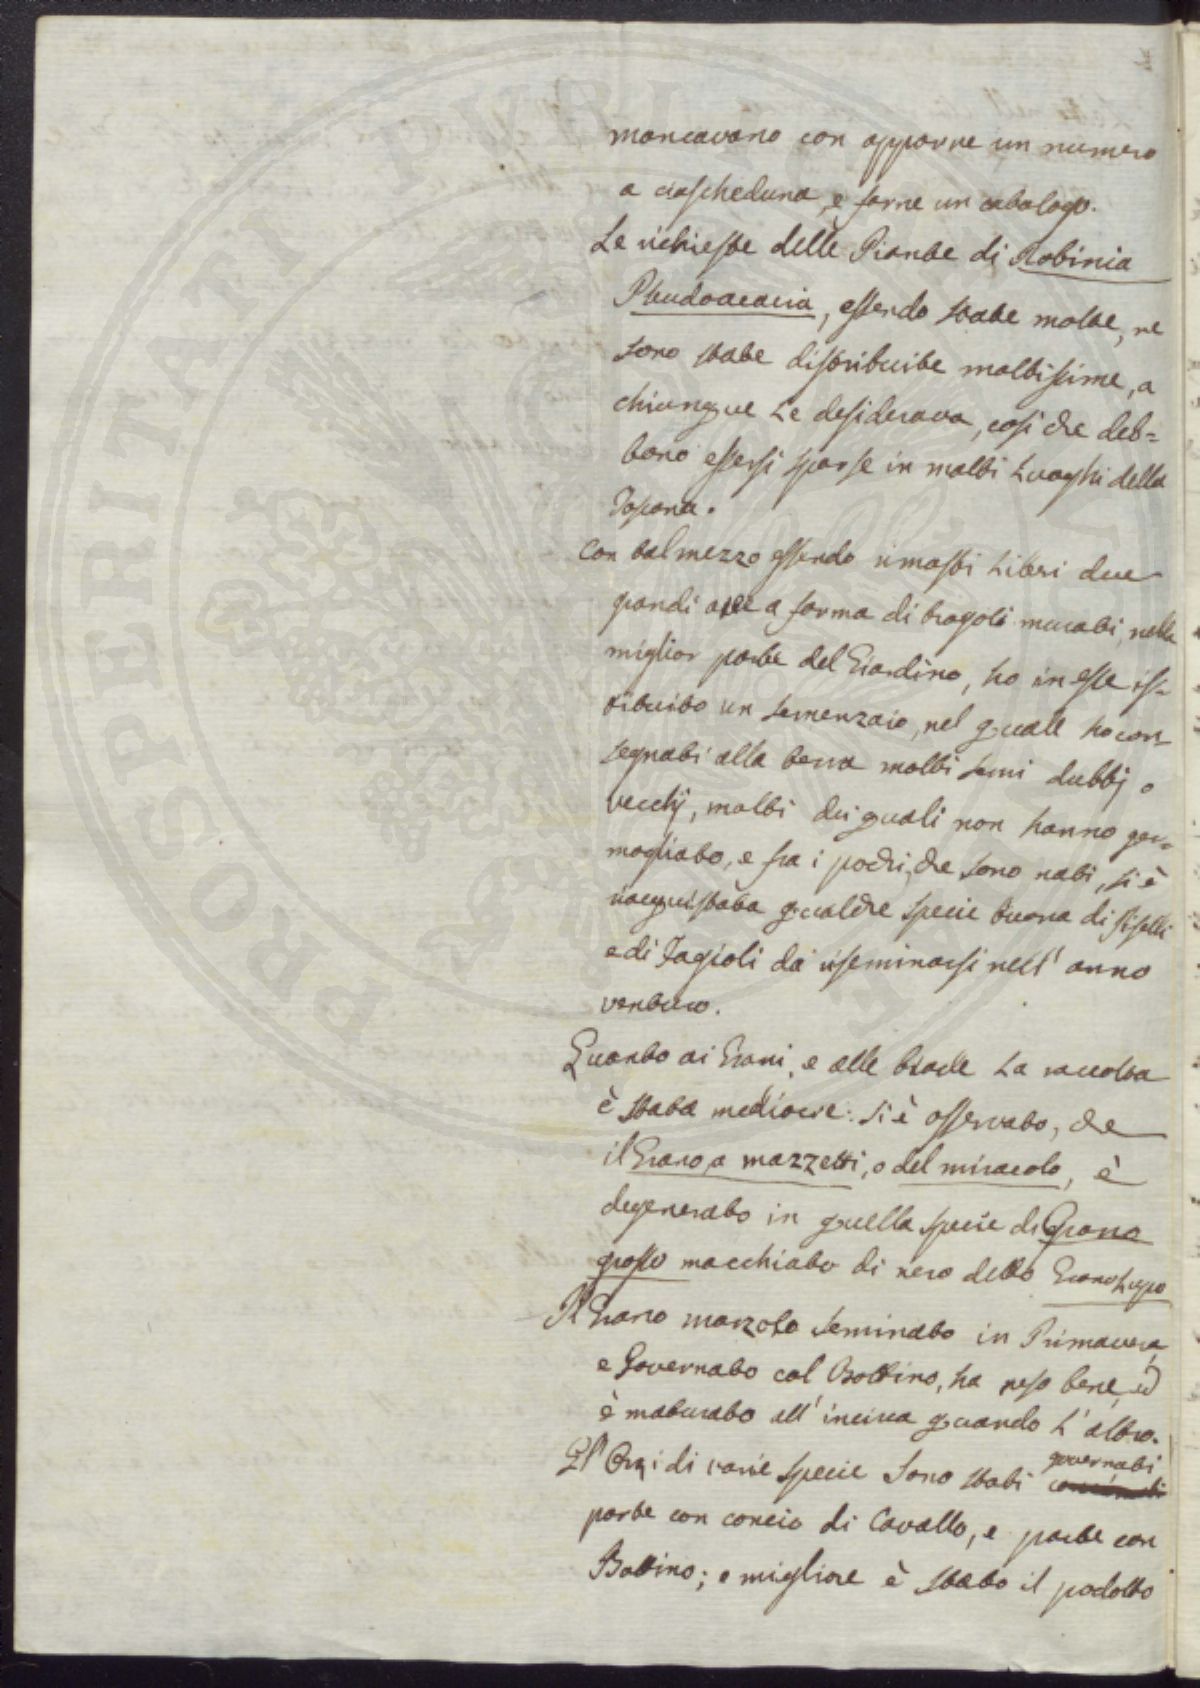 PROSPERITATI PUBLICAE
mancavano con apporre un numero
a ciascheduna, e farne un catalogo.
Le richieste delle Piante di Robinia
Pseudoacacia, essendo state molte, ne
sono state distribuite moltissime, a
chiunque Le desiderava, così che deb=
bano essersi sparse in molti Luoghi della
Toscana.
Con tal mezzo essendo rimasti Liberi due
grandi a forma di tragoli murati, nella
miglior parte del Giardino, ho in esse is-
tituito un semenzaio, nel quale ho con-
segnati alla terra molti semi dubbj o
vecchj, molti dei quali non hanno ger=
mogliato, e fra i pochi, che sono nati, si è
riacquistata qualche specie buona di Piselli
e di Fagioli da riseminarsi nell' anno
venturo.
Quanto ai Grani, e alle biade La raccolta
è stata mediocre: si è osservato, che
il Grano a mazzetti, o del miracolo, è
degenerato in quella specie di Grano
grosso macchiato di nero detto Grano Lupo
Il Grano marzolo seminato in Primavera,
e Governato col Bottino, ha reso bene, ed
è maturato all' incirca quando L' altro.
Gl' Orzi di varie specie sono stati governati
parte con concio di Cavallo, e parte con
Bottino; e migliore è stato il prodotto